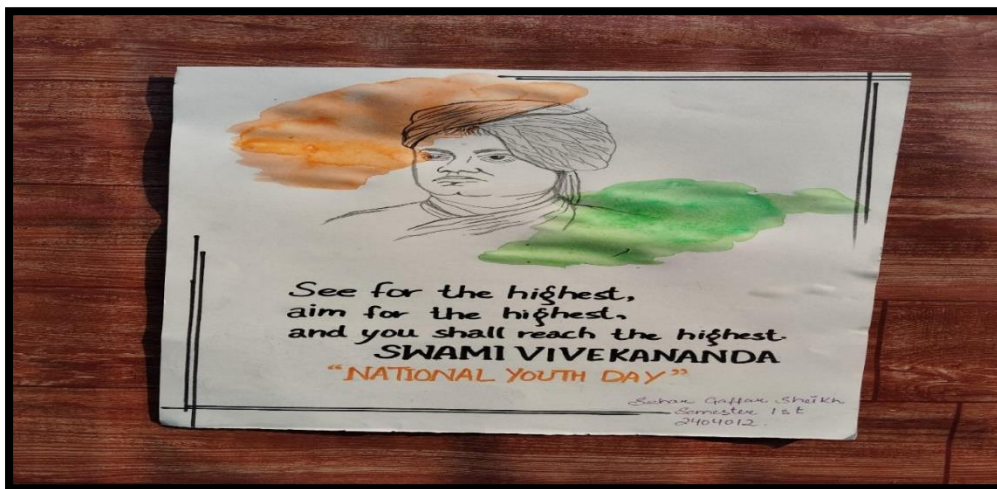 See for the highest,
aim for the highest,
and you shall reach the highest.
SWAMI VIVEKANANDA
"NATIONAL YOUTH DAY"
Sehar Gaffar Sheikh
Semester 1st
2404012.